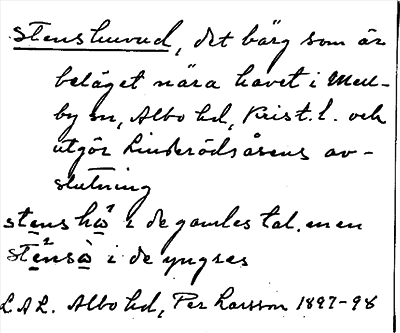 Stenshuvud, det bärg som är
beläget nära havet i Mell-
by sn, Albo hd, Krist. l. och
utgör Linderödsåsens av-
slutning
stens hω̱¹ i de gamles tal. men
sṯe²nsὼ̱ i de yngres
LAL. Albo hd, Per Larsson 1897-98